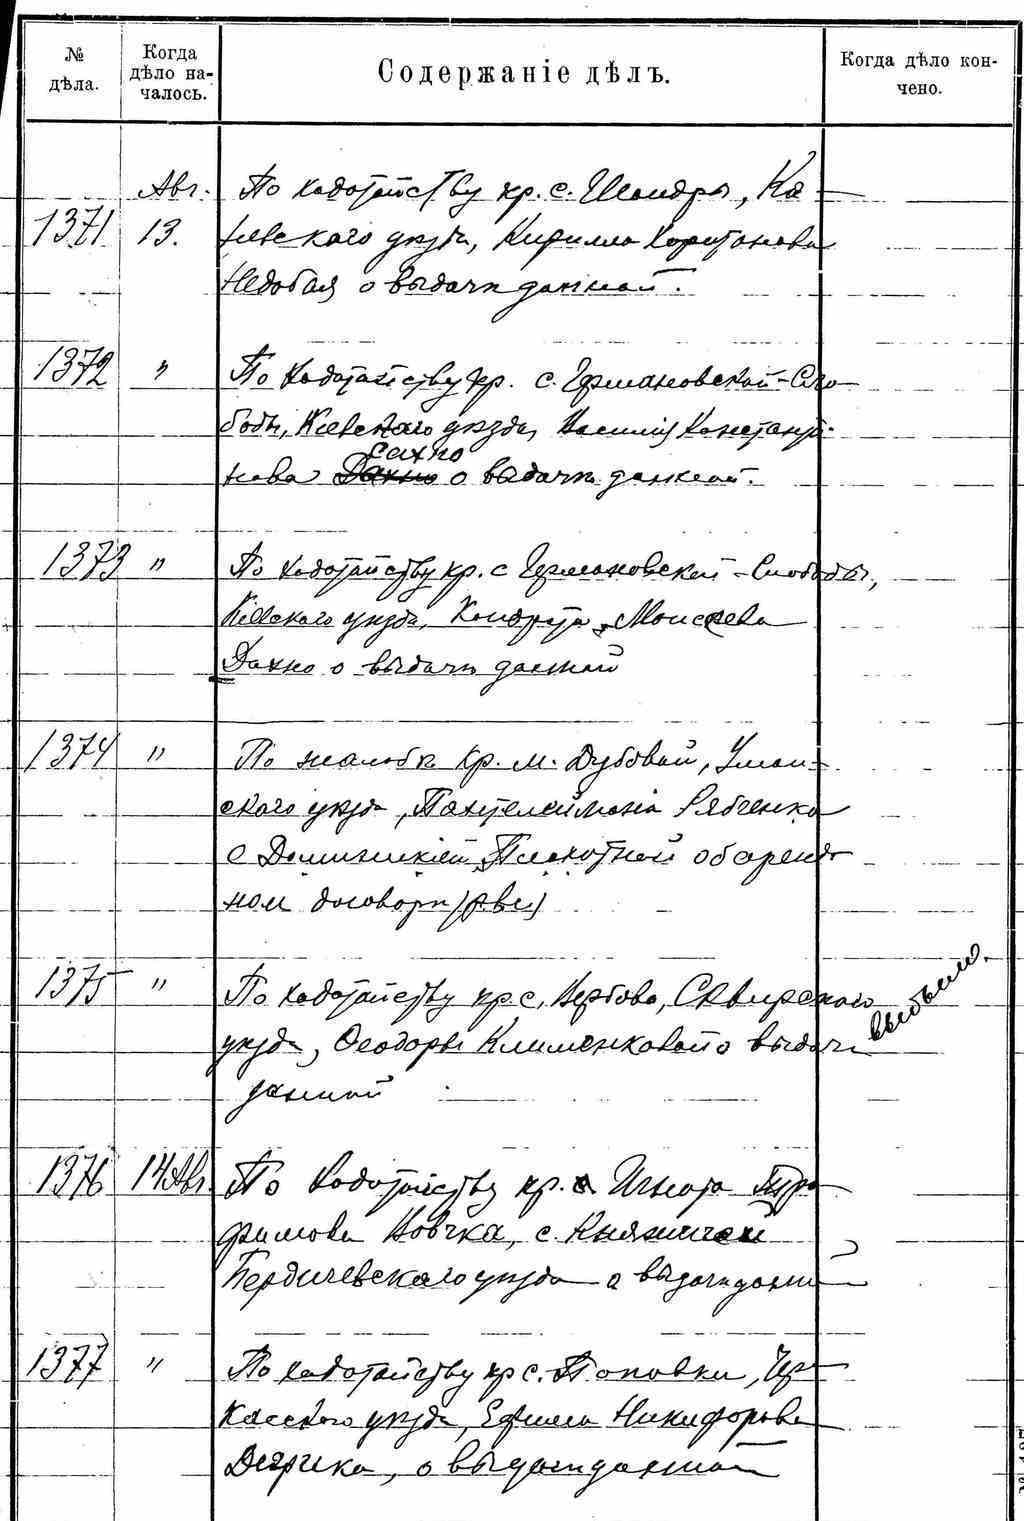 № дѣла.
Когда дѣло на-
чалось.
Содержаніе дѣлъ.
Когда дѣло кон-
чено.
1371 Авг. 13. По ходатайству кр. с. Шандры, Ка-
невского уезда, Кирилла Харитонова
Недобоя о выдачи данной.
1372 " По ходатайству кр. с. Германовской-Сло-
боды, Киевского уезда, Василия Константи-
нова Дахно Сахно о выдачи данной.
1373 " По ходатайству кр. с Германовской-Слободы,
Киевского уезда, Кондрата Моисеева
Дахно о выдачи данной
1374 " По жалобе кр. м. Дубовой, Уман-
ского уезда, Пантелеймона Рябченко
с Доминикией Плахотной об аренд-
ном договоре
1375 " По ходатайству кр. с. Вербова, Сквирского
уезда, Феодоры Клименковой о выдачи
данной
выбыло.
1376 14 Авг. По ходатайству кр. Игната Тро-
фимова Вовчка, с. Княжичей
Бердичевского уезда о выдачи данной
1377 " По ходатайству кр с. Поповки, Чер-
касского уезда, Ефима Никифорова
о выдачи данной